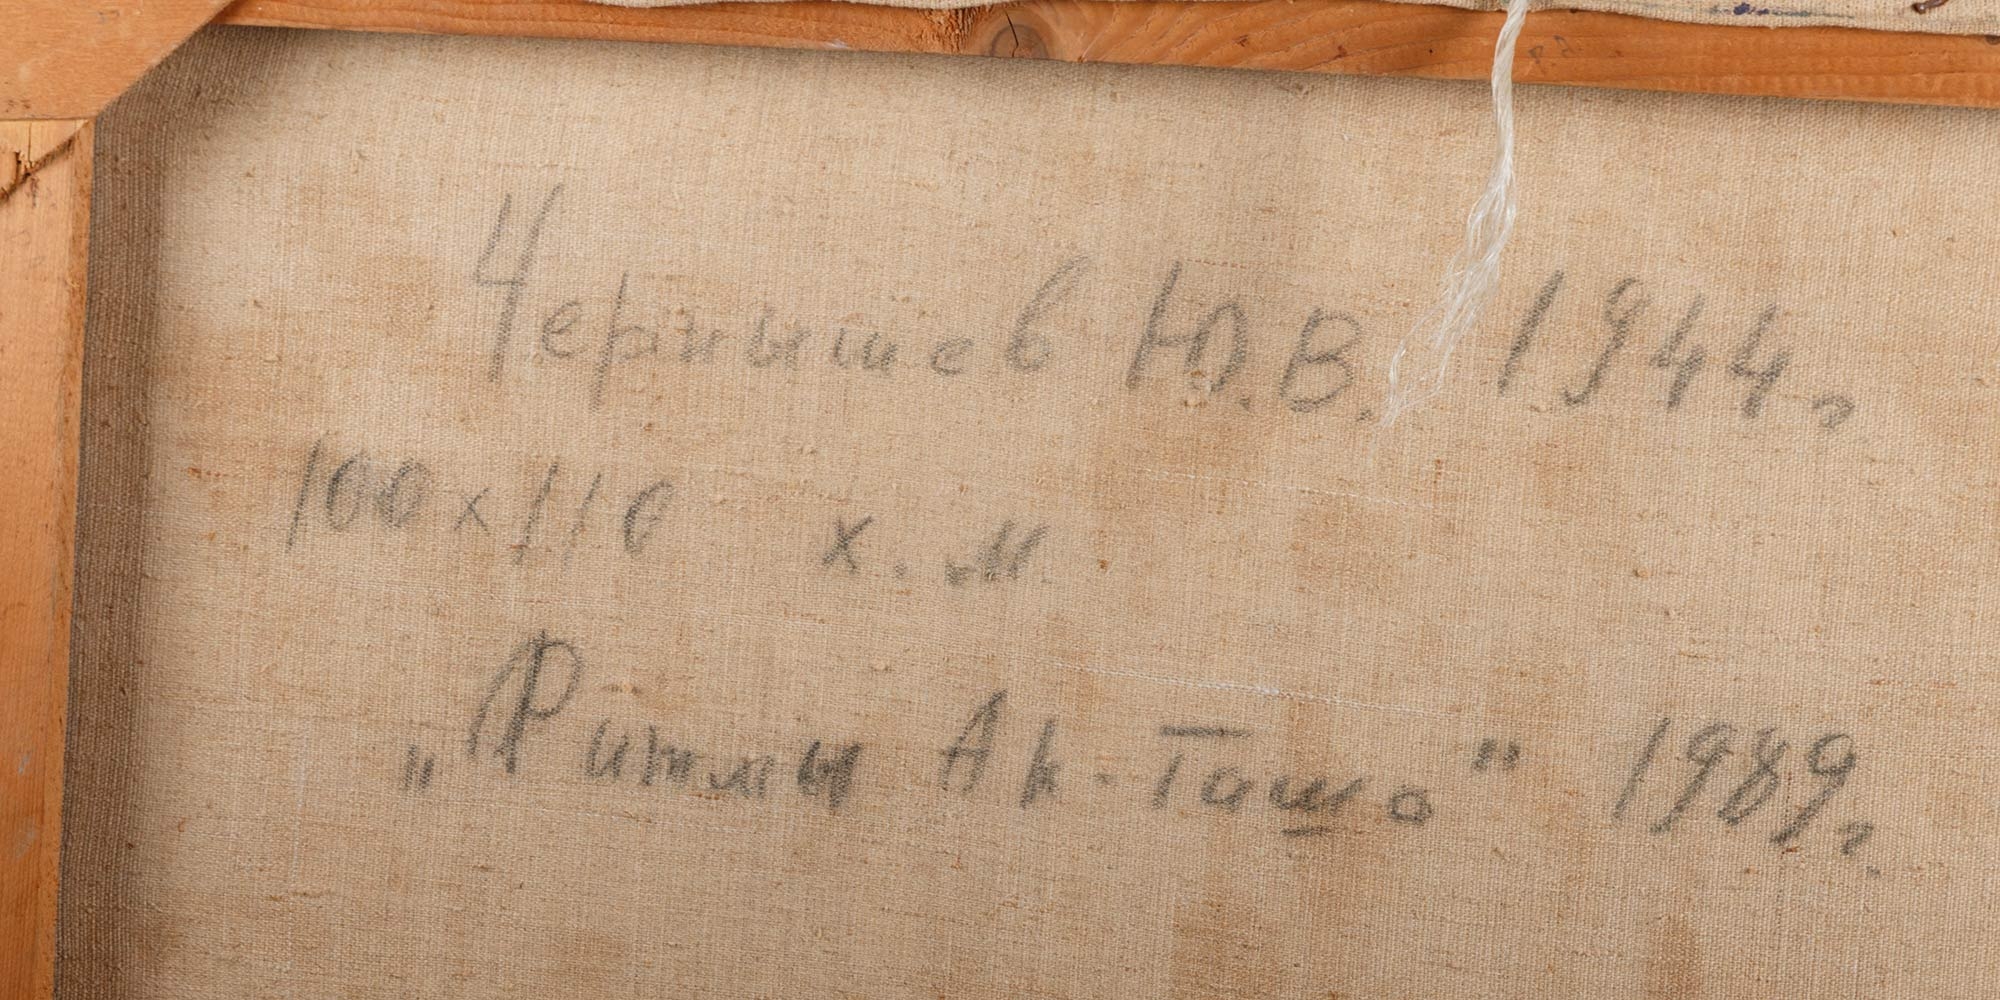 Чернышев Ю.В. 1944г
100х110 х.м.
„Ритмы Ак-Ташо" 1989г.